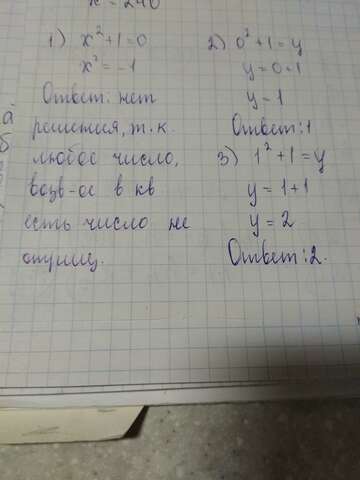 x = 240
1) x² + 1 = 0
x² = -1
Ответ: нет
решения, т.к.
любое число,
возв-ое в кв
есть число не
отриц.
2) 0² + 1 = y
y = 0+1
y = 1
Ответ: 1
3) 1² + 1 = y
y = 1+1
y = 2
Ответ: 2.